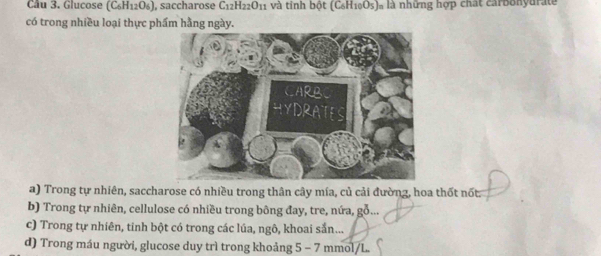 Câu 3. Glucose (C₆H₁₂O₆), saccharose C₁₂H₂₂O₁₁ và tinh bột (C₆H₁₀O₅)ₙ là những hợp chất carbohydrate
có trong nhiều loại thực phẩm hằng ngày.
CARBO
HYDRATES
a) Trong tự nhiên, saccharose có nhiều trong thân cây mía, củ cải đường, hoa thốt nốt.
b) Trong tự nhiên, cellulose có nhiều trong bông đay, tre, nứa, gỗ...
c) Trong tự nhiên, tinh bột có trong các lúa, ngô, khoai sắn...
d) Trong máu người, glucose duy trì trong khoảng 5 – 7 mmol/L.